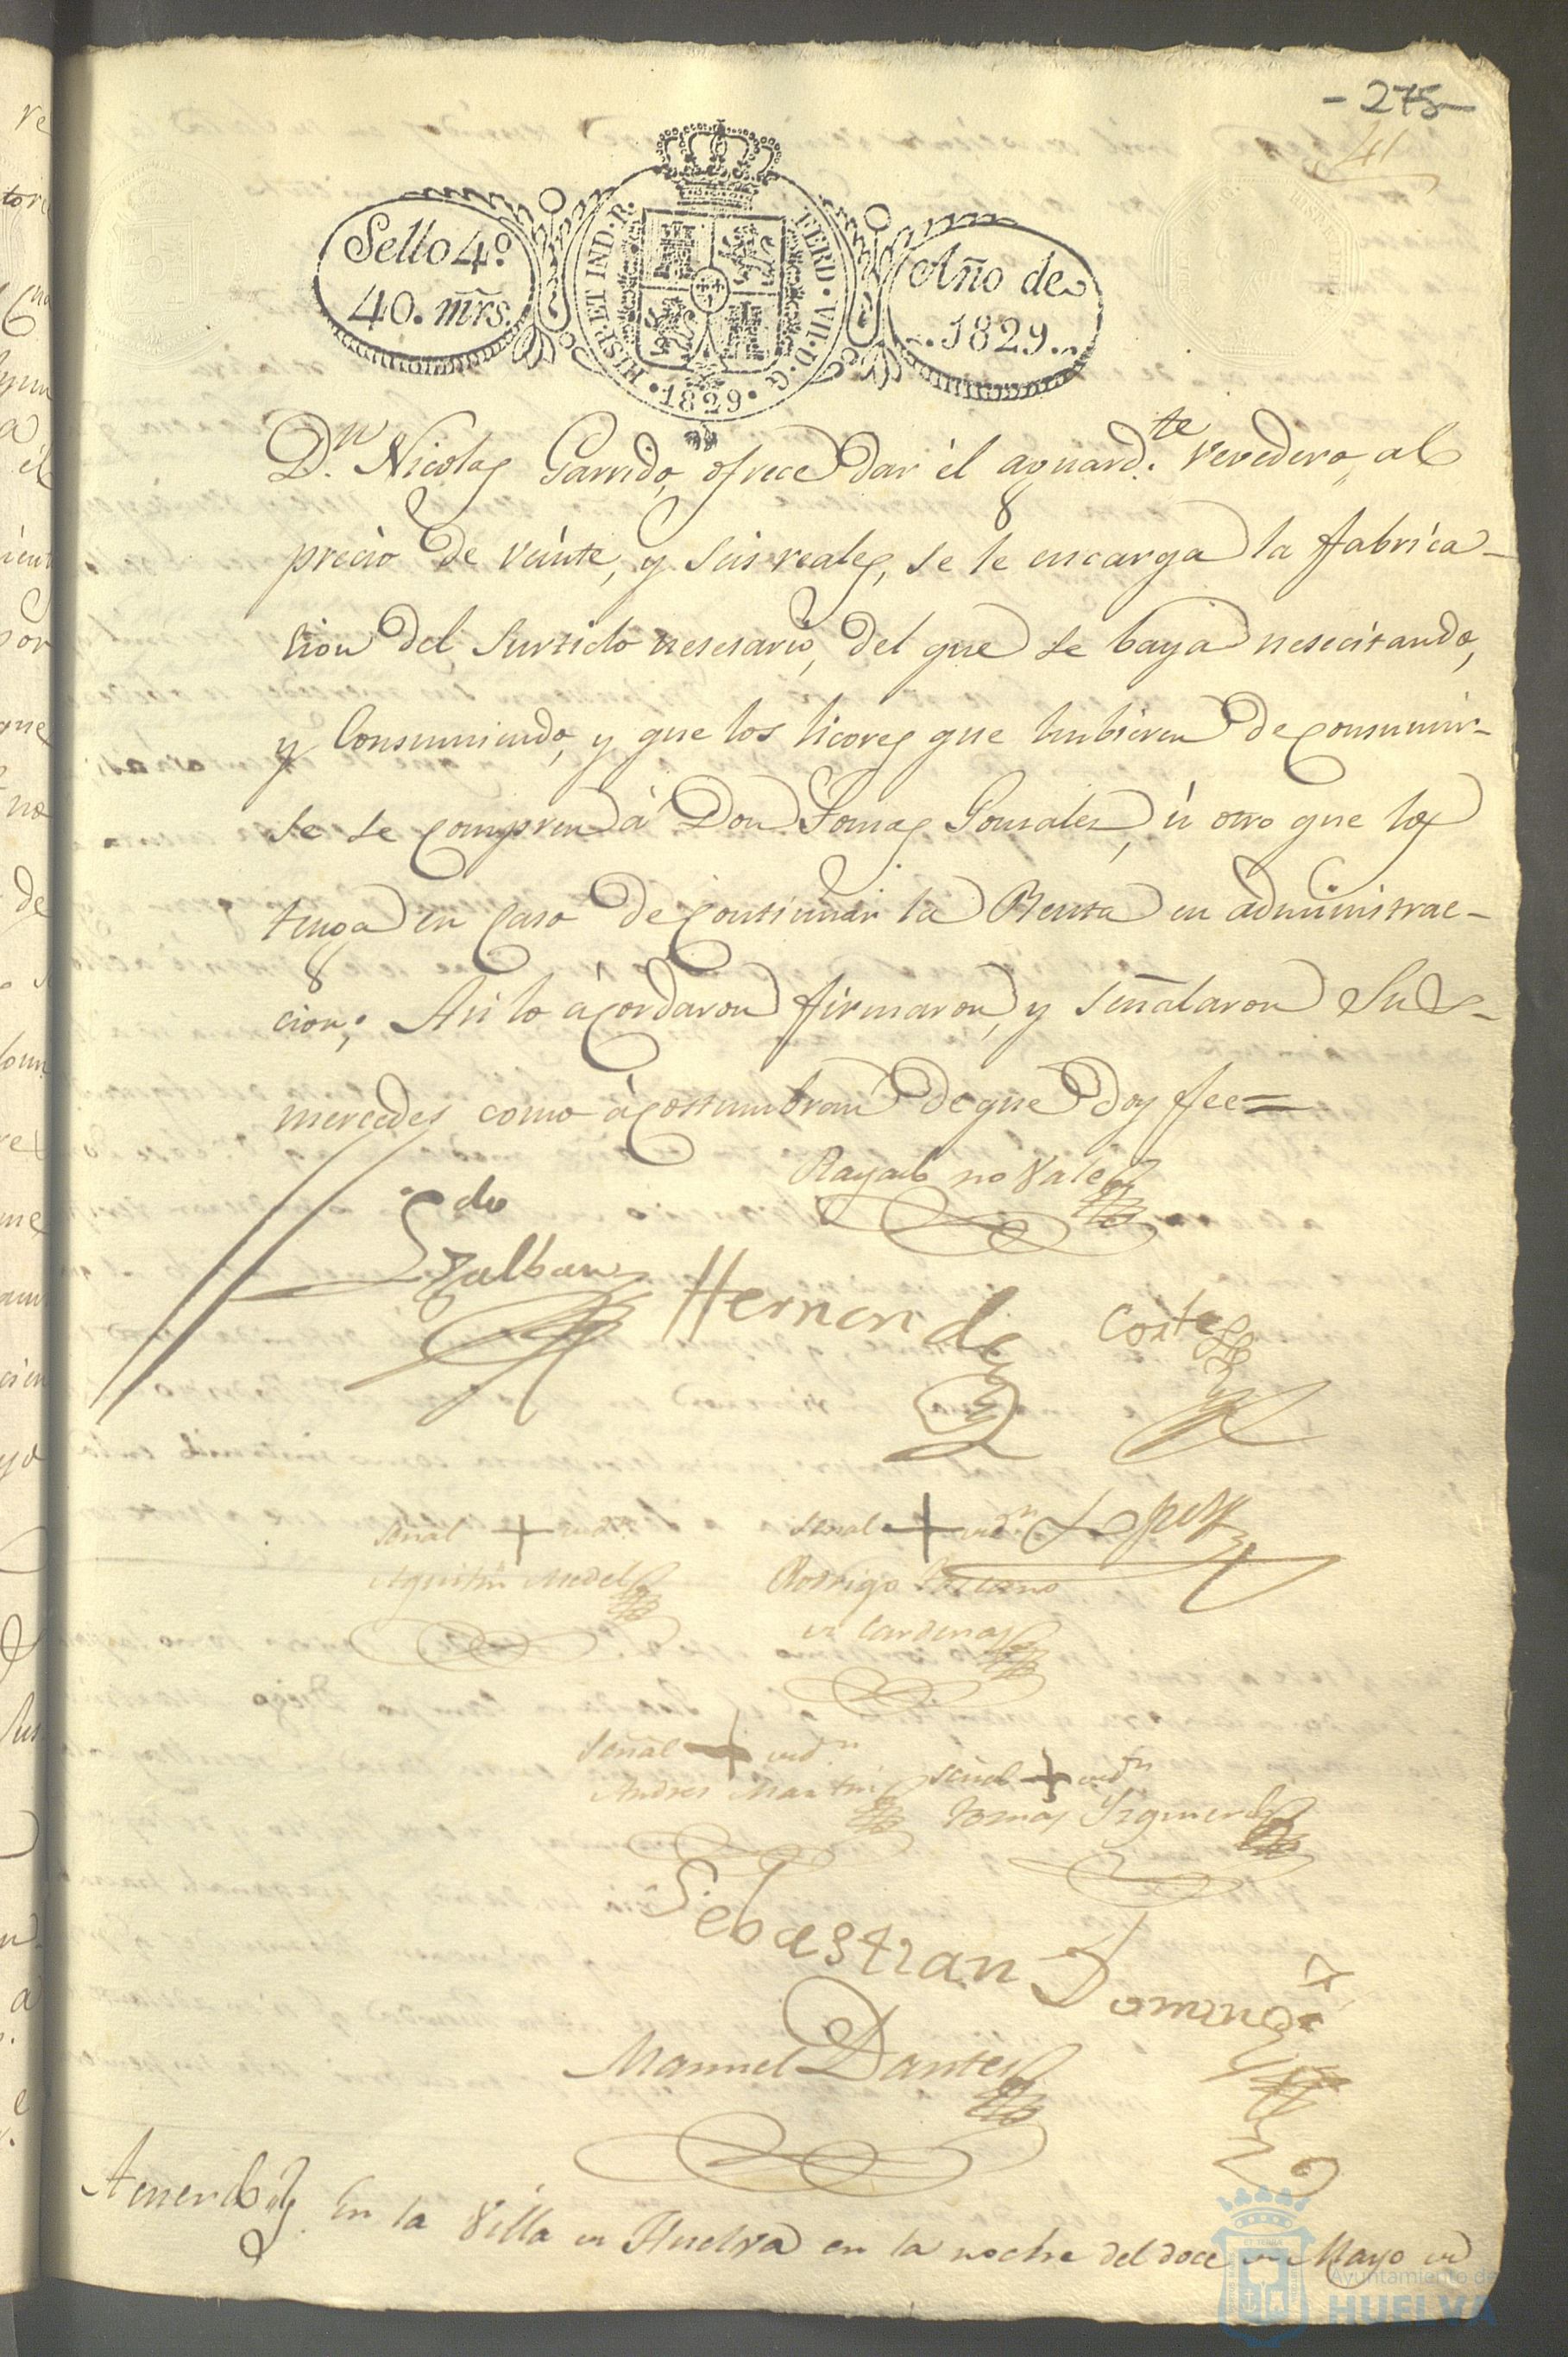 - 275 -
41
Sello 4º
40. mrs.
HISP. ET IND. R.
FERD. VII. D. G.
1829.
Año de
1829.
D.n Nicolas Garrido, ofrece dar él aguard.te vevedero, al
precio de veinte, y seis reales, se le encarga la fabrica-
sion del surtido nesesario, del que se baya nesecitando,
y Consumiendo, y que los licores que hubieren de consumir-
se se compren á Don Tomas Gonsales, ú otro que los
tenga en caso de continuar la Renta en administrac-
cion; Asi lo ácordaron firmaron, y señalaron Sus-
mercedes como ácostumbran de que doy fee =
Rayado no Vale
Galban
Hernandez
Cortes
señal + de
señal + de
Lopez
Agustin Medel
Rodrigo
de Cardenas
señal + de
señal + de
Andres Martin
Tomas Ysquierdo
Sebastian Doming.
Manuel Dantes
Acuerdo
En la Villa de Huelva en la noche del doce de Mayo de
Ayuntamiento de
HUELVA